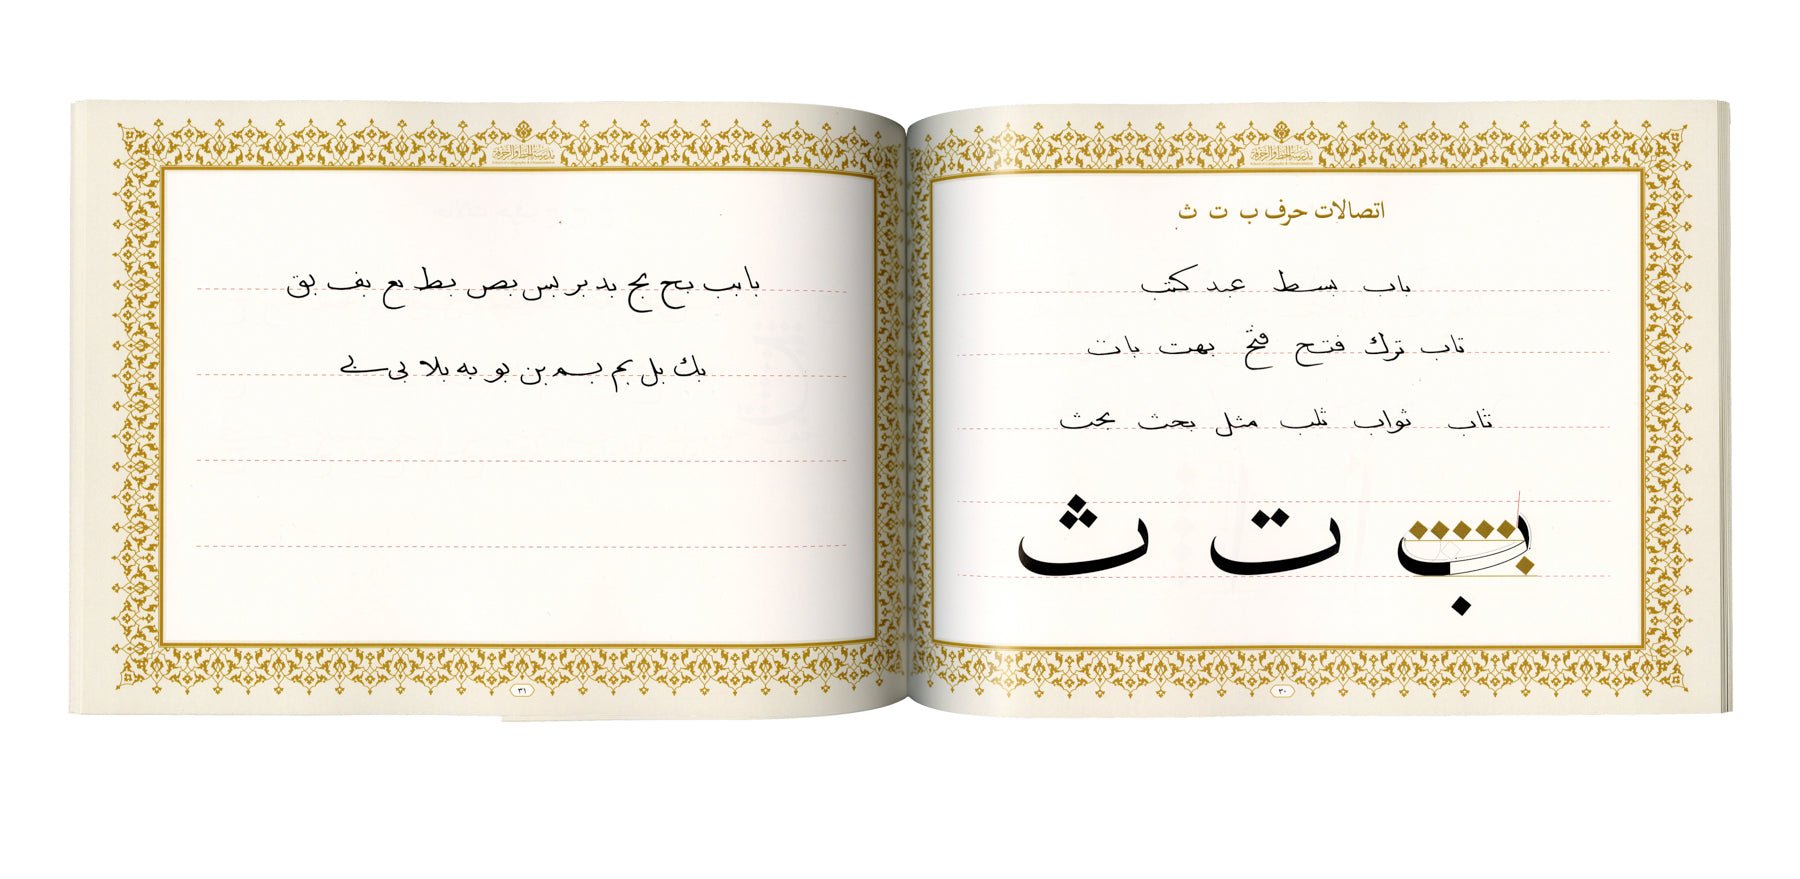 مدرسة الخط والزخرفة
اتصالات حرف ب ت ث
باب بسط عبد كتب
تاب ترك فتح فتح بهت بات
ثاب ثواب ثلب مثل بحث بحث
ب ت ث
٣٠
مدرسة الخط والزخرفة
با بب بح بج بد بر بس بص بط بع بف بق
بك بل بم بم بن بو به بلا بى بے
٣١